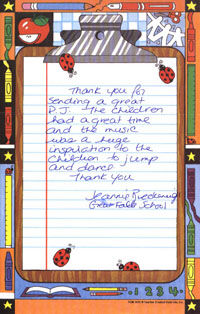 Thank you for
Sending a great
D.J. The children
had a great time
and the music
was a huge
inspiration to the
Children to jump
and dance
Thank you
Jeannie
Great Falls School
1 2 3 4